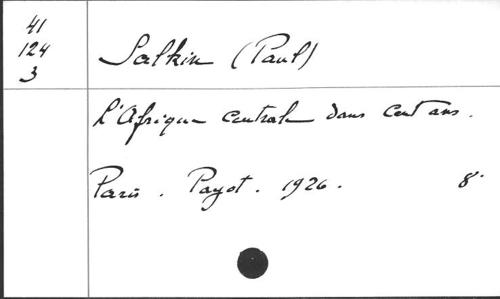 41
124
3
Salkin (Paul)
L'Afrique centrale dans cent ans.
Paris. Payot. 1926. 8°